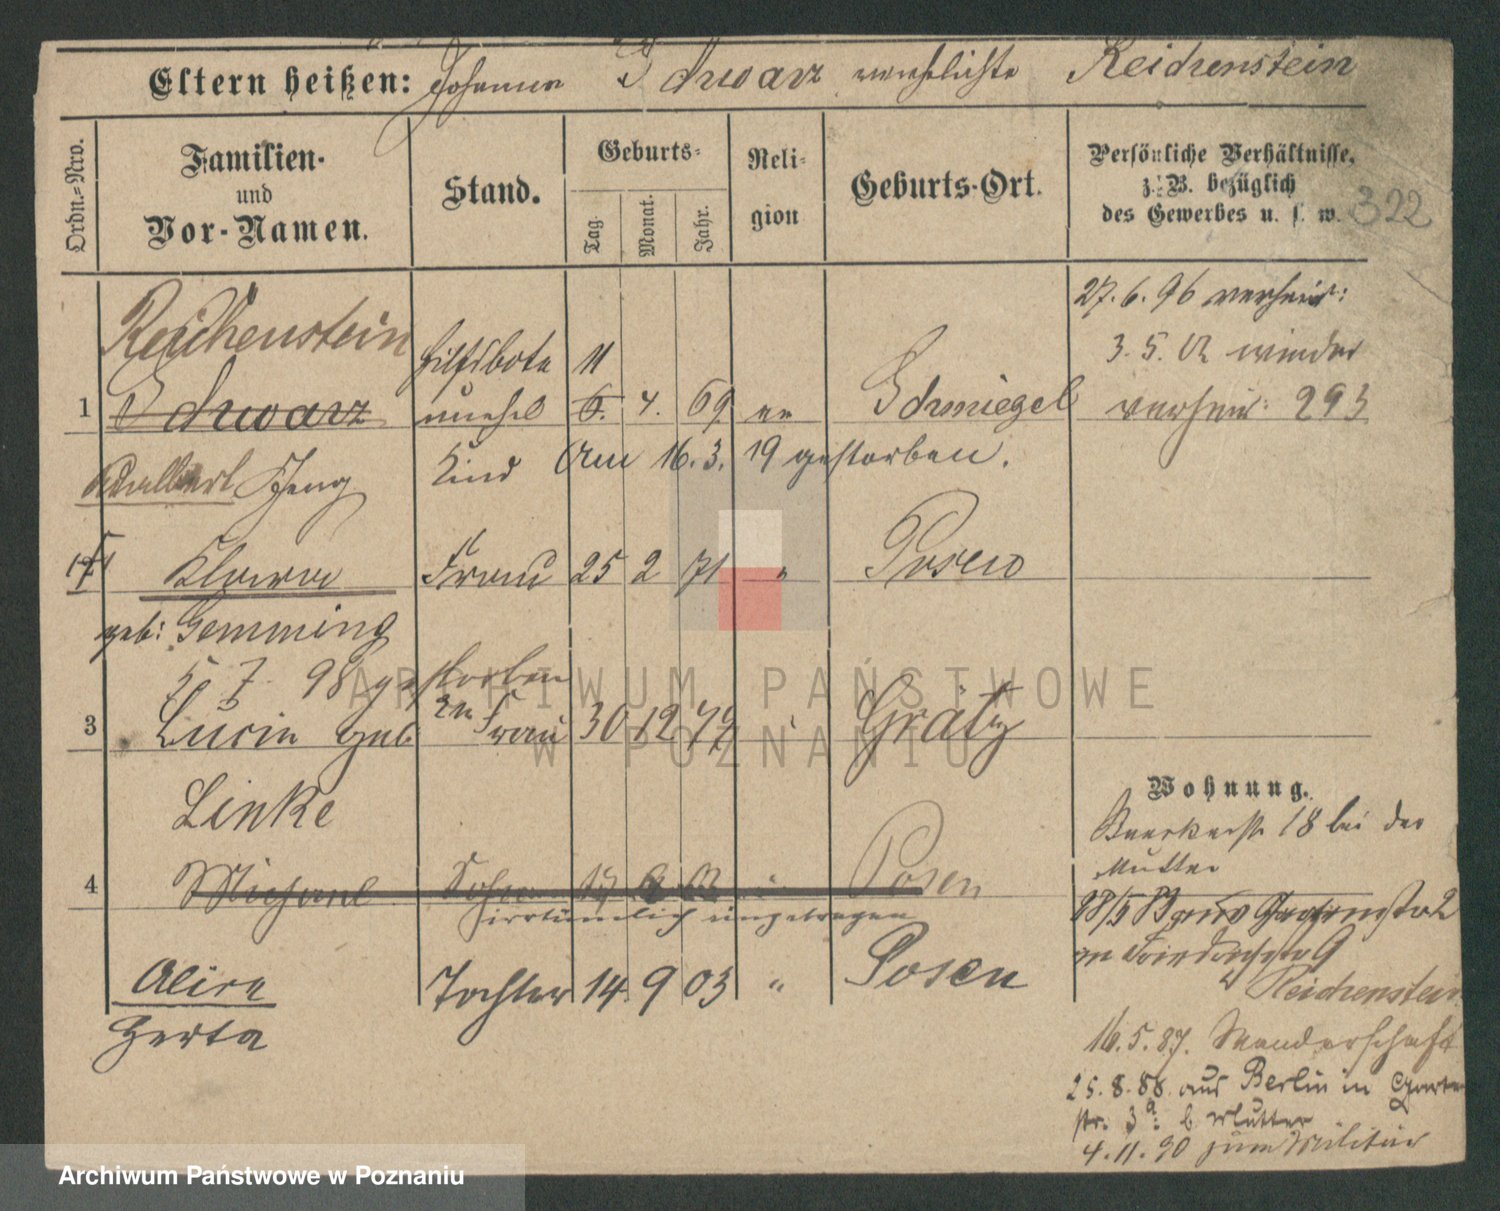 Eltern heißen: Johanna Schwarz verehelichte Reichenstein
Ordn.=Nro.
Familien-
und
Vor-Namen.
Stand.
Geburts-
Tag.
Monat.
Jahr.
Reli-
gion
Geburts-Ort.
Persönliche Verhältnisse,
z. B. bezüglich
des Gewerbes u. s. w.
322
27. 6. 96 verheir:
Reichenstein
Hilfsbote 11
3. 5. 02 wieder
1 Schwarz unehel 6. 4. 69 ev Schmiegel verheir: 293
Adalbert Kind Am 16. 3. 19 gestorben.
Klara Frau 25 2 71 " Posen
geb: Gemming
5 7 98 gestorben
3 Lucie geb 2te Frau 30 12 79 " Grätz
Linke
Wohnung.
18 bei der
Mutter
4 Michael Sohn Posen
irrtümlich eingetragen
Alice Tochter 14 9 03 " Posen
Gerta
Reichenstein
16. 5. 87. Wanderschaft
25. 8. 88. aus Berlin in Garten
str. 3a: b Mutter
4. 11. 90 zum Militär
ARCHIWUM PAŃSTWOWE
W POZNANIU
Archiwum Państwowe w Poznaniu